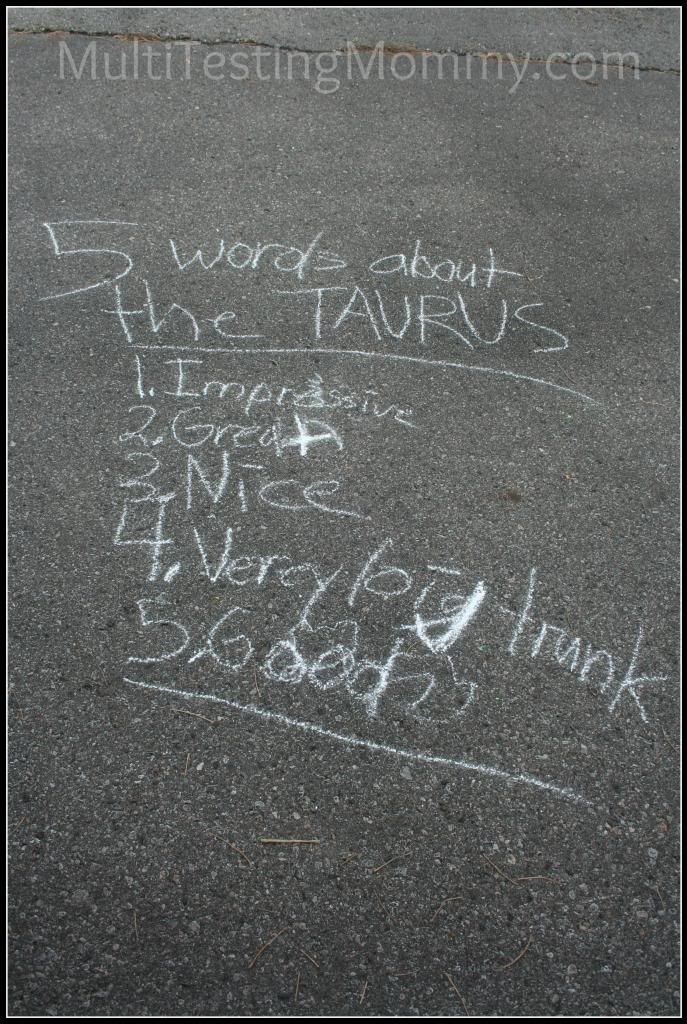 MultiTestingMommy.com
5 words about
the TAURUS
1. Impressive
2. Great
3. Nice
4. Very big trunk
5. Good